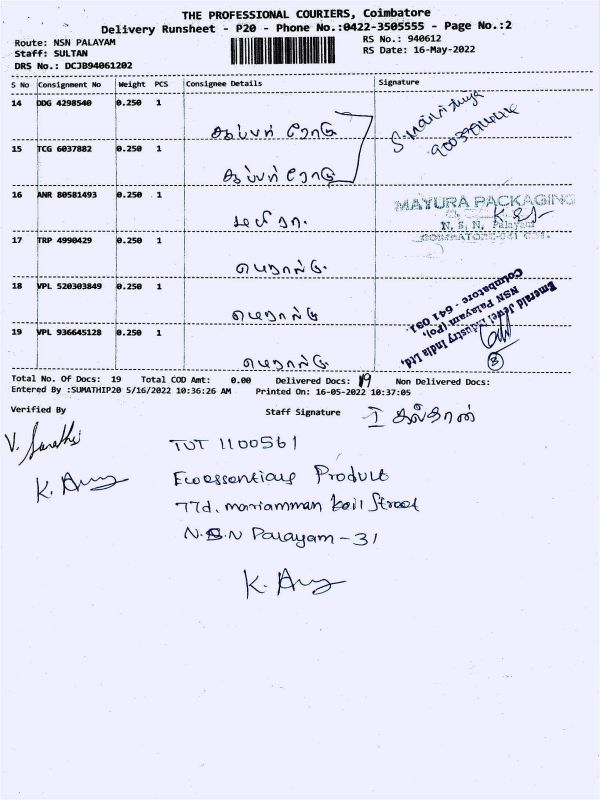 THE PROFESSIONAL COURIERS, Coimbatore
Delivery Runsheet - P20 - Phone No.:0422-3505555 - Page No.:2
Route: NSN PALAYAM
Staff: SULTAN
DRS No.: DCJB94061202
RS No.: 940612
RS Date: 16-May-2022
S No Consignment No Weight PCS Consignee Details Signature
14 DDG 4298540 0.250 1
15 TCG 6037882 0.250 1
16 ANR 80581493 0.250 1
MAYURA PACKAGING
N. S. N. Palayam
COIMBATORE-641 031.
17 TRP 4990429 0.250 1
18 VPL 520303849 0.250 1
Emerald Jewel Industry India Ltd.
NSN Palayam (Po),
Coimbatore - 641 031.
3
19 VPL 936645128 0.250 1
Total No. Of Docs: 19 Total COD Amt: 0.00 Delivered Docs: 19 Non Delivered Docs:
Entered By :SUMATHIP20 5/16/2022 10:36:26 AM Printed On: 16-05-2022 10:37:05
Verified By Staff Signature
TUT 1100561
Ecoessentials Product
77d. mariamman koil Street
N.S.N Palayam - 31